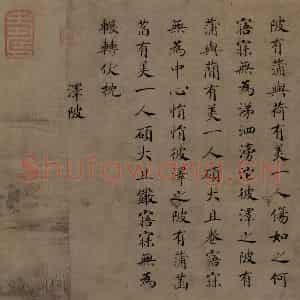 陂有蒲與荷有美一人傷如之何
寤寐無為涕泗滂沱彼澤之陂有
蒲與蕑有美一人碩大且卷寤寐
無為中心悁悁彼澤之陂有蒲菡
萏有美一人碩大且儼寤寐無為
輾轉伏枕
澤陂
Shufawang.cn